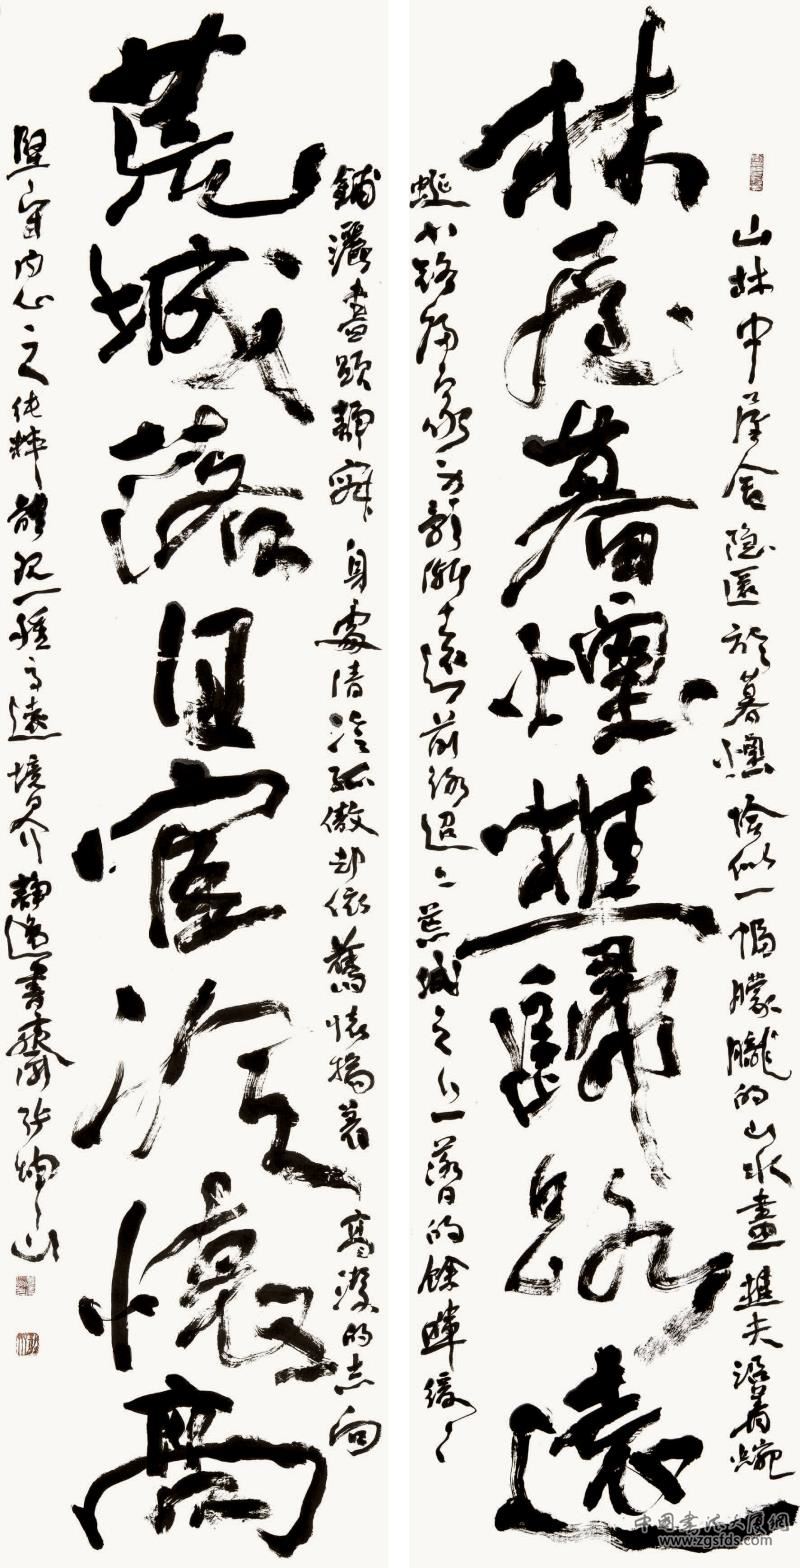 林屋暮煙樵歸路遠
山林中屋舍隐匿於暮煙恰似一幅朦朧的山水畫樵夫沿着蜿
蜒小路歸家身影漸遠前路迢迢荒城之上落日的餘暉緩緩
荒城落日宦冷懷高
鋪灑盡顯靜寂身處清冷孤傲却依舊懷揣着高潔的志向
堅守内心之純粹體現一種高遠境界静逸書齋張坤山
中国书法大厦网
www.zgsfds.com